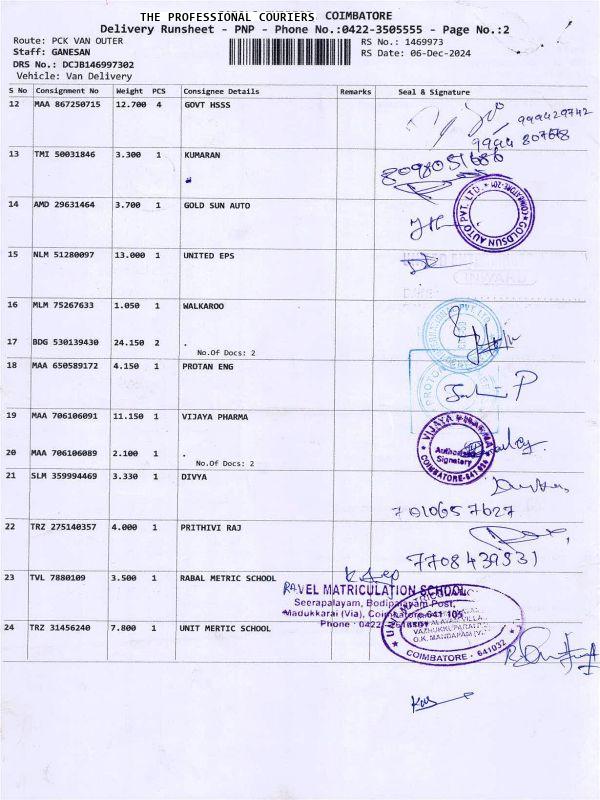 THE PROFESSIONAL COURIERS COIMBATORE
Delivery Runsheet - PNP - Phone No.:0422-3505555 - Page No.:2
Route: PCK VAN OUTER RS No.: 1469973
Staff: GANESAN RS Date: 06-Dec-2024
DRS No.: DCJB146997302
Vehicle: Van Delivery
S No Consignment No Weight PCS Consignee Details Remarks Seal & Signature
12 MAA 867250715 12.700 4 GOVT HSSS
999429742
9994 807678
13 TMI 50031846 3.300 1 KUMARAN
8098051686
14 AMD 29631464 3.700 1 GOLD SUN AUTO
GOLDSUN AUTO PVT. LTD. * COIMBATORE-201 *
15 NLM 51280097 13.000 1 UNITED EPS
INWARD
16 MLM 75267633 1.050 1 WALKAROO
17 BDG 530139430 24.150 2 .
No.Of Docs: 2
18 MAA 650589172 4.150 1 PROTAN ENG
19 MAA 706106091 11.150 1 VIJAYA PHARMA
VIJAYA PHARMA
Authorised
Signatory
COIMBATORE-641
20 MAA 706106089 2.100 1 .
No.Of Docs: 2
21 SLM 359994469 3.330 1 DIVYA
7010657627
22 TRZ 275140357 4.000 1 PRITHIVI RAJ
7708439531
23 TVL 7880109 3.500 1 RABAL METRIC SCHOOL
RAVEL MATRICULATION SCHOOL
Seerapalayam, Bodipalayam Post,
Madukkarai (Via), Coimbatore-641 105
Phone : 0422
24 TRZ 31456240 7.800 1 UNIT MERTIC SCHOOL
COIMBATORE - 641032